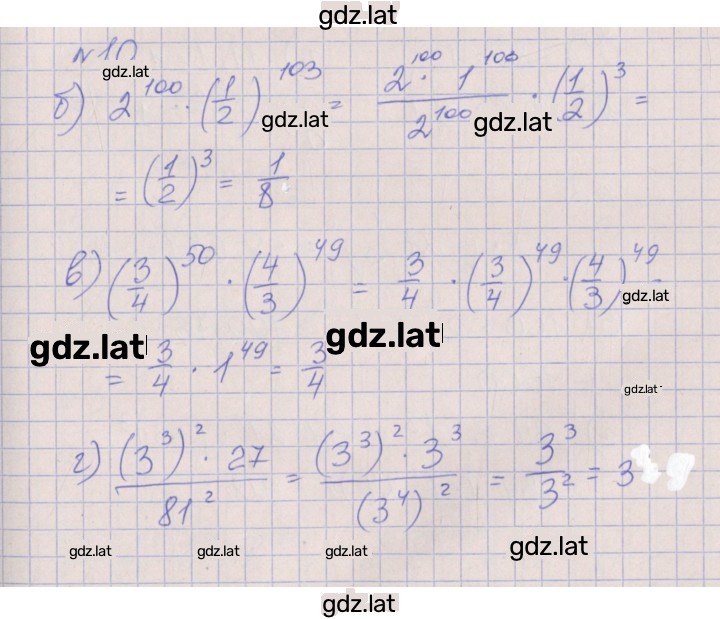 gdz.lat
№10
gdz.lat
б) 2^100 · (1/2)^103 = (2^100 · 1^100)/2^100 · (1/2)^3 =
gdz.lat gdz.lat
= (1/2)^3 = 1/8
в) (3/4)^50 · (4/3)^49 = 3/4 · (3/4)^49 · (4/3)^49
gdz.lat
gdz.lat gdz.lat
= 3/4 · 1^49 = 3/4
gdz.lat
г) ((3^3)^2 · 27)/81^2 = ((3^3)^2 · 3^3)/(3^4)^2 = 3^3/3^2 = 3
gdz.lat gdz.lat gdz.lat gdz.lat
gdz.lat